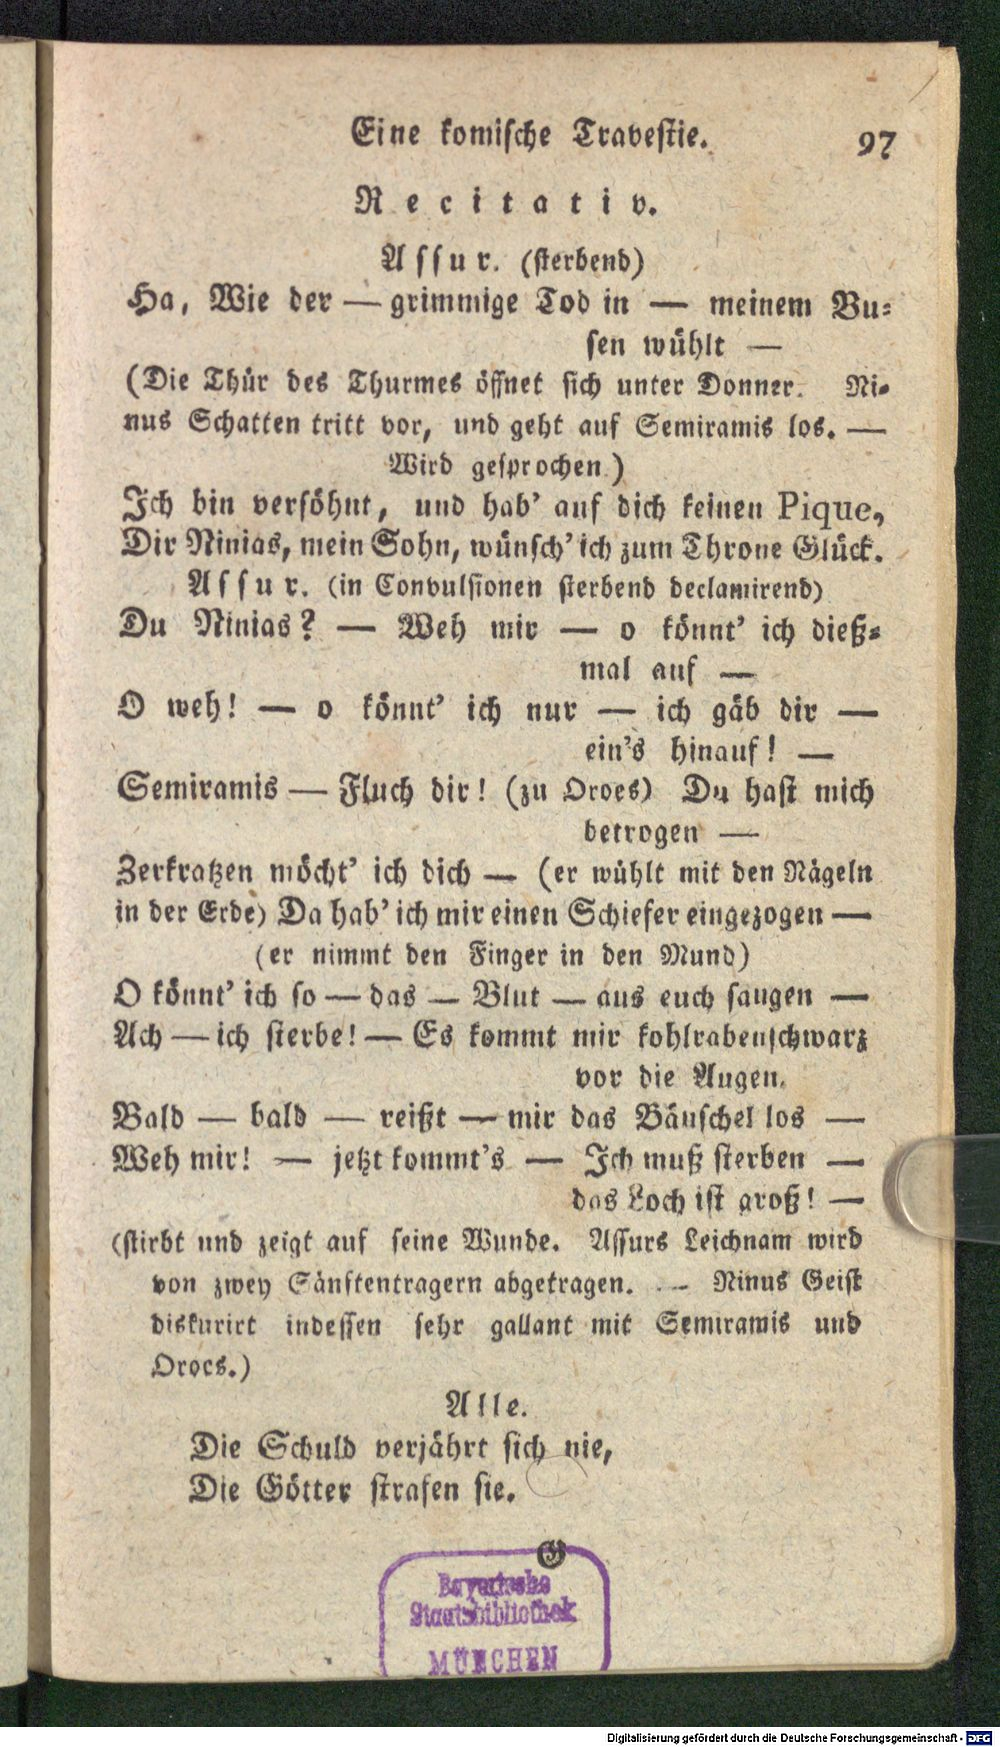 Eine komische Travestie. 97
Recitativ.
Assur. (sterbend)
Ha, Wie der — grimmige Tod in — meinem Bu-
sen wühlt —
(Die Thür des Thurmes öffnet sich unter Donner. Ni-
nus Schatten tritt vor, und geht auf Semiramis los. —
Wird gesprochen.)
Ich bin versöhnt, und hab' auf dich keinen Pique,
Dir Ninias, mein Sohn, wünsch' ich zum Throne Glück.
Assur. (in Convulsionen sterbend declamirend)
Du Ninias? — Weh mir — o könnt' ich dieß-
mal auf —
O weh! — o könnt' ich nur — ich gäb dir —
ein's hinauf! —
Semiramis — Fluch dir! (zu Oroes) Du hast mich
betrogen —
Zerkratzen möcht' ich dich — (er wühlt mit den Nägeln
in der Erde) Da hab' ich mir einen Schiefer eingezogen —
(er nimmt den Finger in den Mund)
O könnt' ich so — das — Blut — aus euch saugen —
Ach — ich sterbe! — Es kommt mir kohlrabenschwarz
vor die Augen.
Bald — bald — reißt — mir das Bäuschel los —
Weh mir! — jetzt kommt's — Ich muß sterben —
das Loch ist groß! —
(stirbt und zeigt auf seine Wunde. Assurs Leichnam wird
von zwey Sänftentragern abgetragen. — Ninus Geist
diskurirt indessen sehr gallant mit Semiramis und
Oroes.)
Alle.
Die Schuld verjährt sich nie,
Die Götter strafen sie.
G
Bayerische
Staatsbibliothek
MÜNCHEN
Digitalisierung gefördert durch die Deutsche Forschungsgemeinschaft - DFG